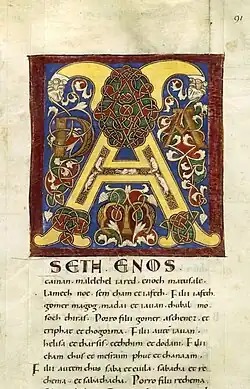 91
A
SETH. ENOS.
cainan. malelehel iared. enoch matusale.
Lamech noe. sem cham et iafeth. Filii iafeth
gomer magog. madai et iauan. thubal mo
soch thiras. Porro filii gomer. aschenez. et
et thogorma. Filii aut iauan.
helisa et tharsis. cethim et dodani. Filii
cham chus et mesraim phut et chanaam.
Filii autem chus saba et euila. sabatha et re
chema. et sabathaca. Porro filii rechema.